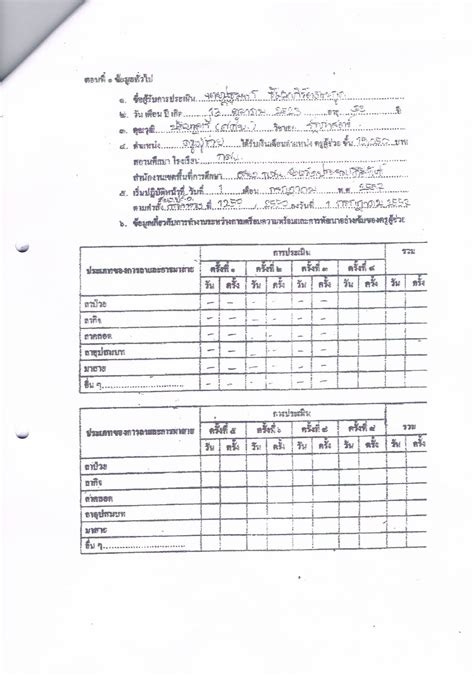 ตอนที่ ๑ ข้อมูลทั่วไป
๑. ชื่อผู้รับการประเมิน
๒. วัน เดือน ปี เกิด 13 ตุลาคม 2523 อายุ ปี
๓. คุณวุฒิ วิชาเอก
๔. ตำแหน่ง ครูผู้ช่วย ได้รับเงินเดือนตำแหน่ง ครูผู้ช่วย ขั้น บาท
สถานศึกษา โรงเรียน
สำนักงานเขตพื้นที่การศึกษา
๕. เริ่มปฏิบัติหน้าที่ วันที่ 1 เดือน กรกฎาคม พ.ศ. 2557
ตามคำสั่ง ที่ 1250 / 2557 ลงวันที่ 1 กรกฎาคม 2557
๖. ข้อมูลเกี่ยวกับการทำงานระหว่างการเตรียมความพร้อมและการพัฒนาอย่างเข้มของครูผู้ช่วย
ประเภทของการลาและการมาสาย การประเมิน รวม
ครั้งที่ ๑ ครั้งที่ ๒ ครั้งที่ ๓ ครั้งที่ ๔
วัน ครั้ง วัน ครั้ง วัน ครั้ง วัน ครั้ง วัน ครั้ง
ลาป่วย – – – – – –
ลากิจ – – – – – –
ลาคลอด – – – – – –
ลาอุปสมบท – – – – – –
มาสาย – – – – – –
อื่น ๆ – – – – – –
ประเภทของการลาและการมาสาย การประเมิน รวม
ครั้งที่ ๕ ครั้งที่ ๖ ครั้งที่ ๘
วัน ครั้ง วัน ครั้ง วัน ครั้ง วัน ครั้ง วัน ครั้ง
ลาป่วย
ลากิจ
ลาคลอด
ลาอุปสมบท
มาสาย
อื่น ๆ